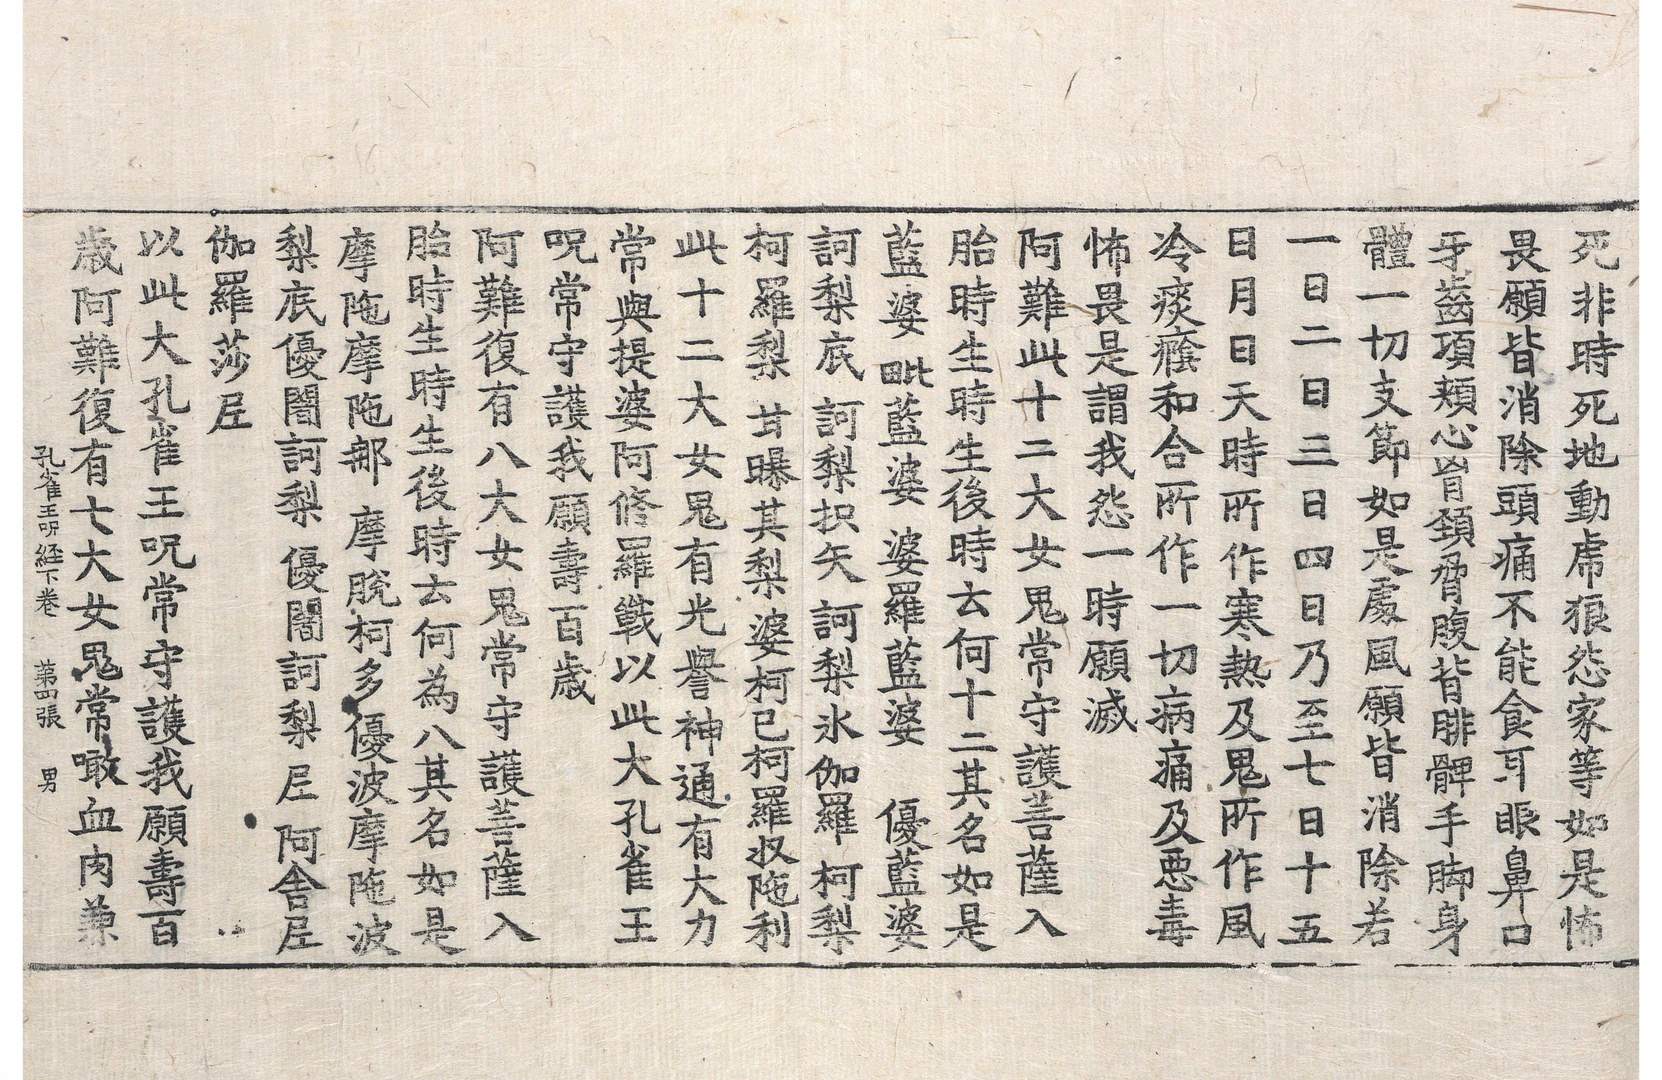 死非時死地動虎狼怨家等如是怖
畏願皆消除頭痛不能食耳眼鼻口
牙齒項頰心胷頚脅腹背腓髀手脚身
體一切支節如是處風願皆消除若
一日二日三日四日乃至七日十五
日月日天時所作寒熱及鬼所作風
冷痰癊和合所作一切病痛及惡毒
怖畏是謂我怨一時願滅
阿難此十二大女鬼常守護菩薩入
胎時生時生後時云何十二其名如是
藍婆 毗藍婆 婆羅藍婆 優藍婆
訶梨底 訶梨抧矢 訶梨氷伽羅 柯梨
柯羅梨 甘曝其梨婆柯已柯羅叔陁利
此十二大女鬼有光譽神通有大力
常與提婆阿修羅戰以此大孔雀王
呪常守護我願壽百歳
阿難復有八大女鬼常守護菩薩入
胎時生時生後時云何為八其名如是
摩陁摩陁那 摩脫柯多優波摩陁波
梨底優闍訶梨 優闍訶梨 𡰱阿舍𡰱
伽羅莎𡰱
以此大孔雀王呪常守護我願壽百
歳阿難復有七大女鬼常噉血肉兼
孔雀王呪経下卷 苐四張 男